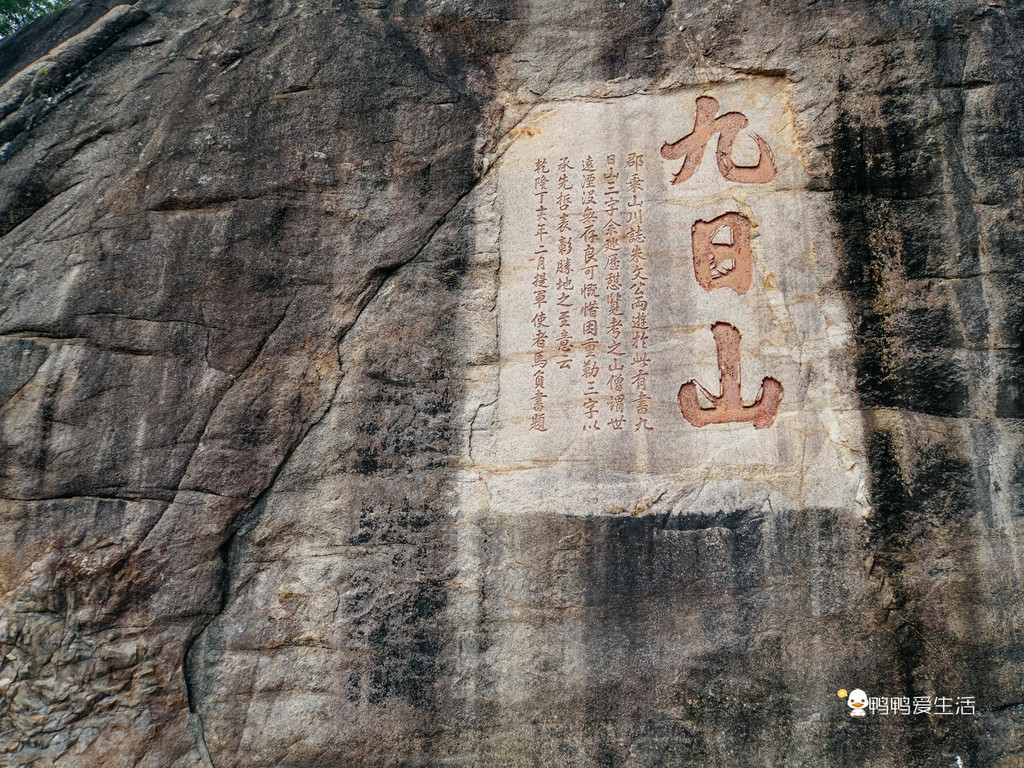 九日山
郡乘山川誌朱文公両遊於此有書九
日山三字余地歷憩覽考之山僧謂世
遠湮没無存良可慨惜因重勒三字以
承先哲表彰勝地之至意云
乾隆丁亥年二月提軍使者馬負書題
鸭鸭爱生活